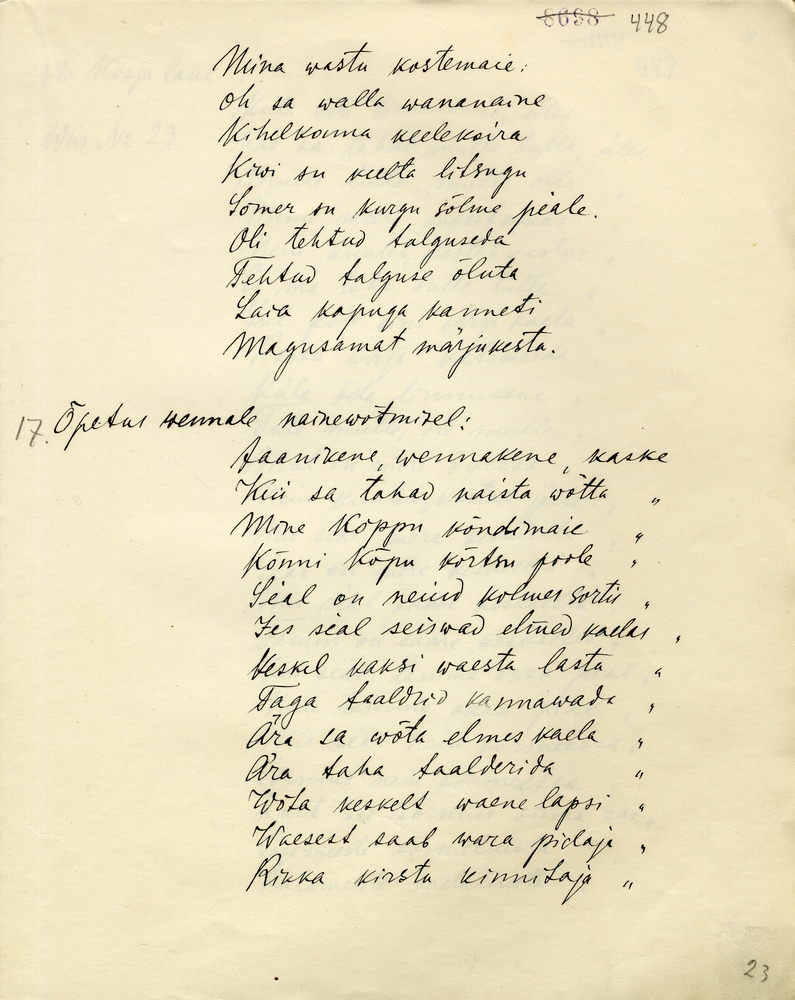 8698 448
Mina wastu kostemaie:
oh sa walla wananaine
Kihelkonna keelekoira
Kiwi su keelta litsugu
Sõmer su kurgu sõlme peale.
Oli tehtud talguseda
Tehtud talguse õluta
Laia kapuga kanneti
Magusamat märjukesta.
17. Õpetus wennale nainewõtmisel:
Jaanikene, wennakene, kaske
Kui sa tahad naista wõtta "
Mine Kõppu kõndimaie "
Kõnni Kõpu kõrtsu poole "
Seal on neiud kolmes sortis "
Ees seal seiswad elmed kaelas "
Keskel kaksi waesta lasta "
Taga taaldrid kannawada "
Ära sa wõta elmes kaela "
Ära taha taalderida "
Wõta keskelt waene lapsi "
Waesest saab wara pidaja "
Rikka kirstu kinnitaja "
23